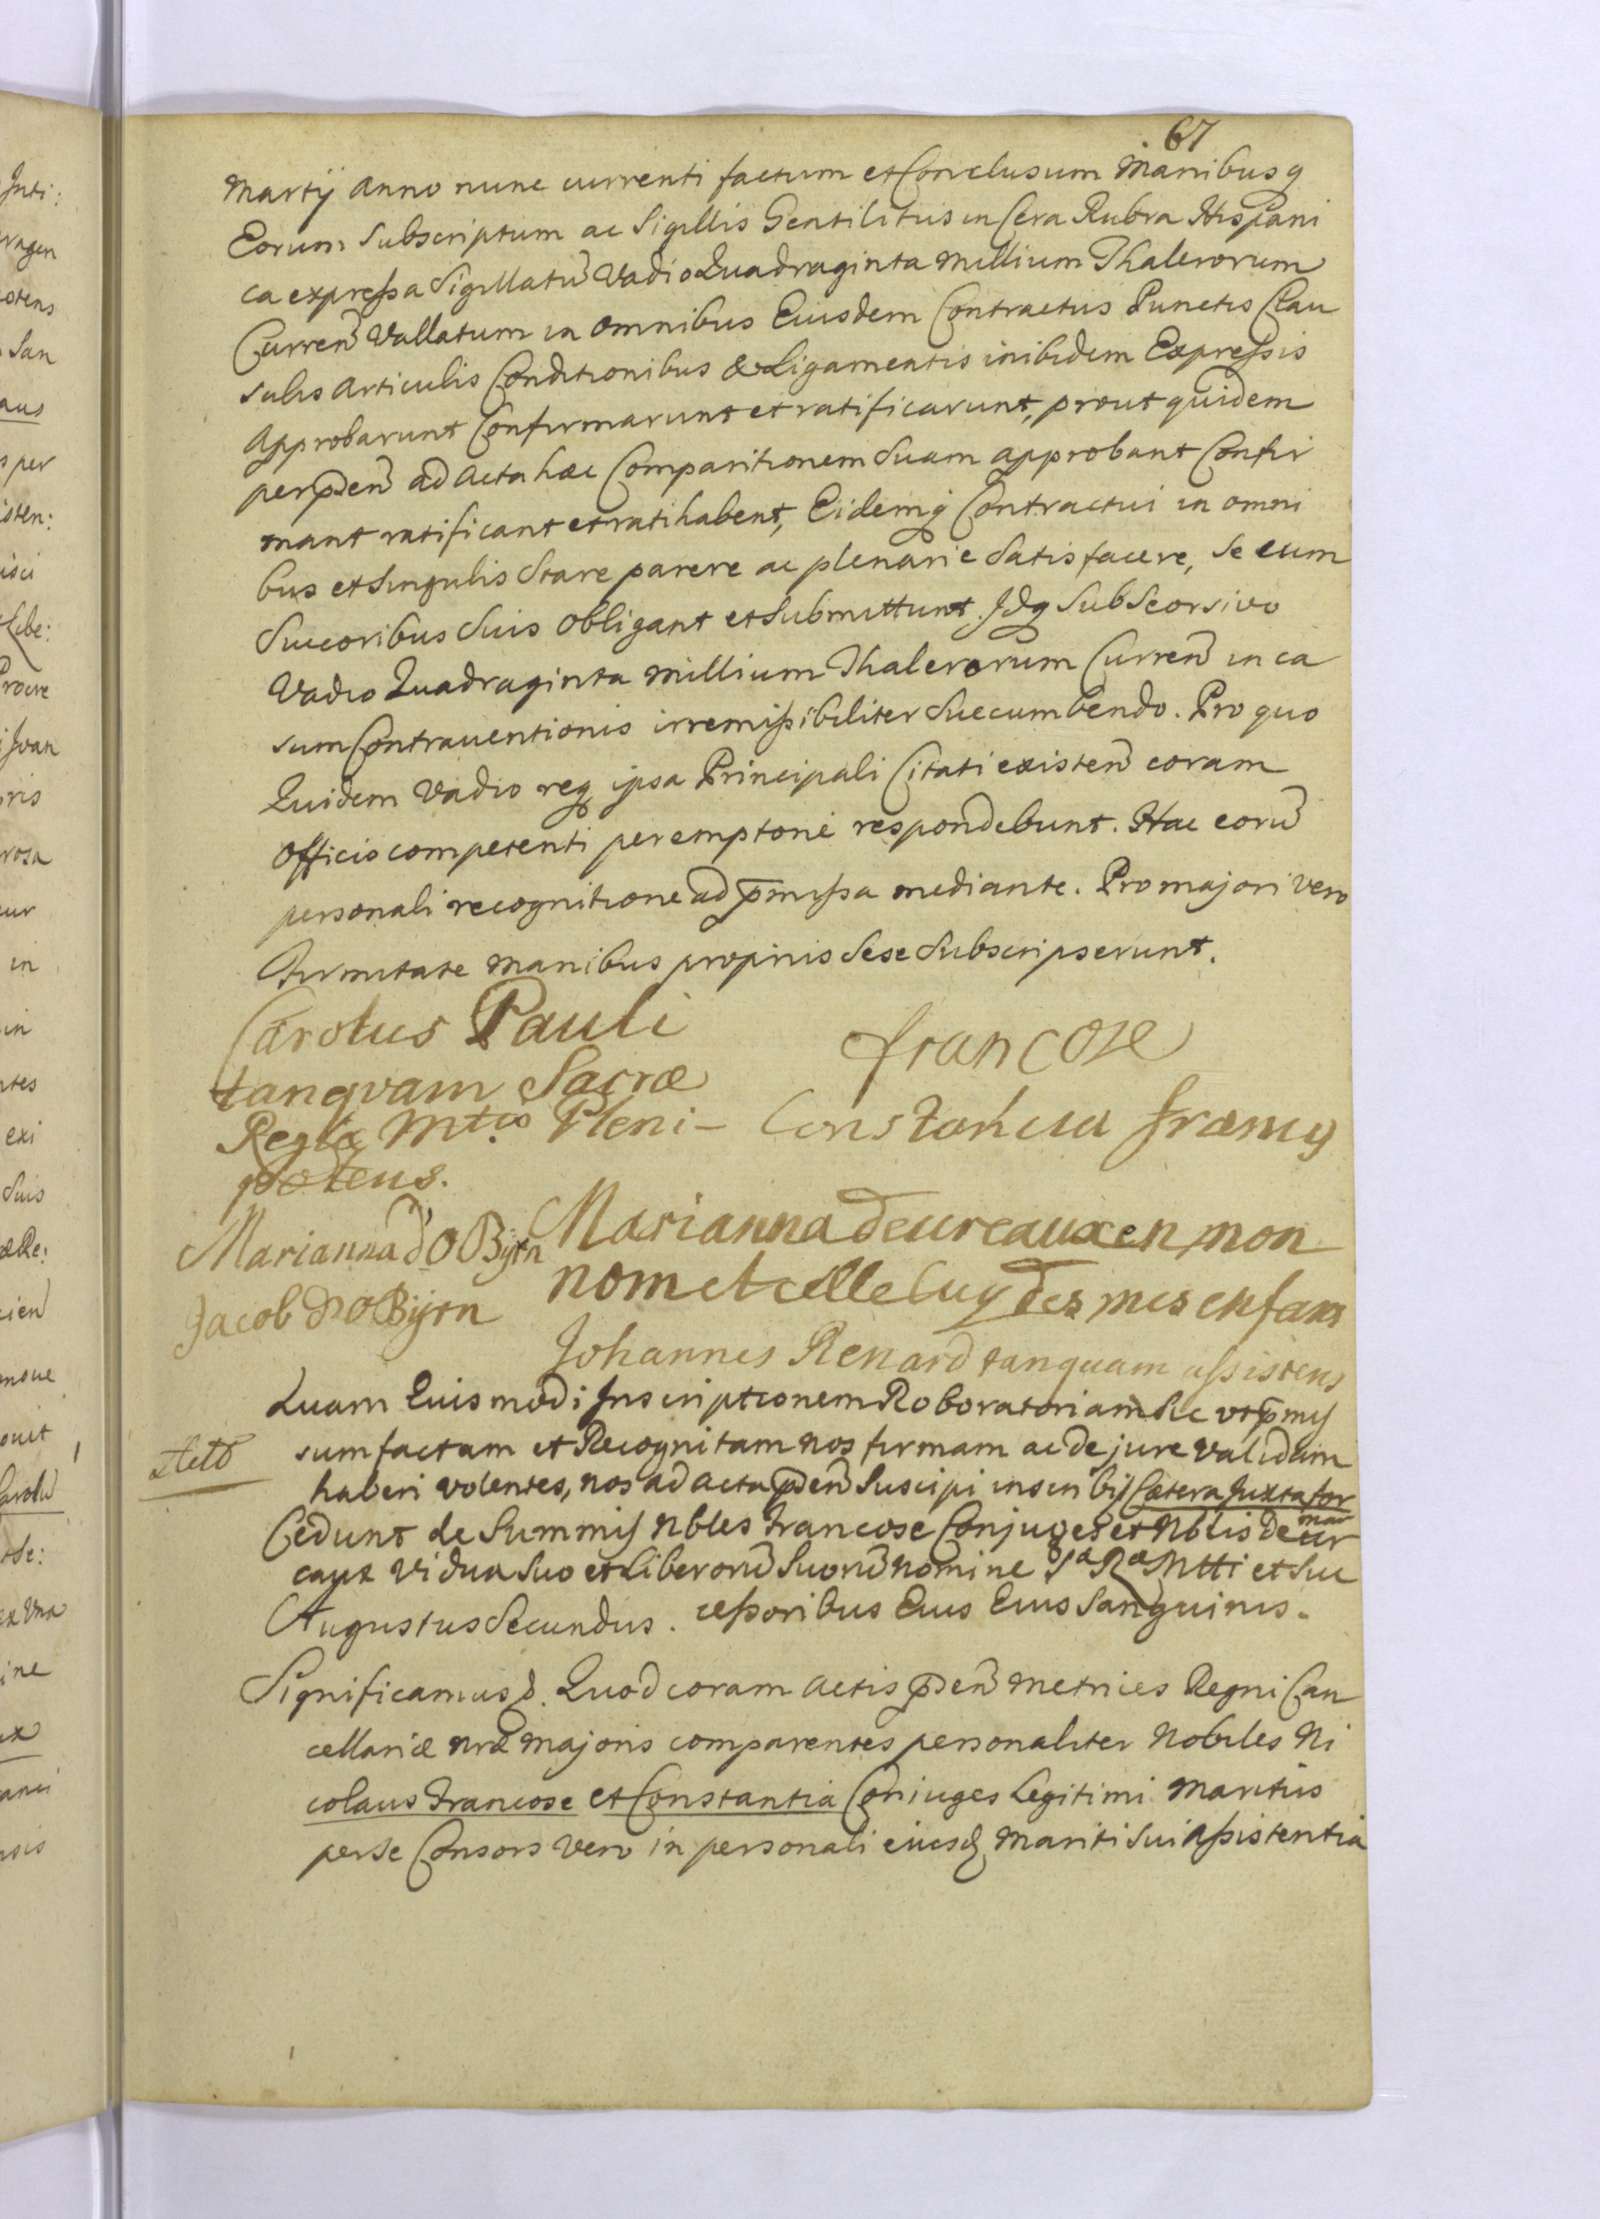 67
Martij Anno nunc currenti factum et Conclusum Manibusq
Eorum Subscriptum ac Sigillis Gentilitiis in Cera Rubra Hispani
ca expressa Sigillatū Vadio Quadraginta Millium Thalerorum
Curren̄ Vallatum in omnibus Eiusdem Contractus Punctis Clau
sulis Articulis Conditionibus & Ligamentis inibidem Expressis
Approbarunt Confirmarunt et ratificarunt, prout quidem
per p̄sen̄ ad Acta hæc Comparitionem Suam approbant Confir
mant ratificant et ratihabent, Eidemq Contractui in omni
bus et Singulis Stare parere ac plenarie Satisfacere, Se cum
Succoribus Suis obligant et Submittunt. Idq Sub Seorsivo
Vadio Quadraginta Millium Thalerorum Curren̄ in ca
sum Contraventionis irremissibiliter Succumbendo. Pro quo
Quidem Vadio req ipsa Principali Citati existen̄ coram
Officio competenti peremptorie respondebunt. Hac eorū
personali recognitione ad p̄missa mediante. Pro majori vero
Firmitate manibus propriis Sese Subscripserunt.
Carolus Pauli
tanqvam Sacræ
Regiæ Mttis Pleni-
potens.
francose
Constancia
Marianna d'O Bijrn
Jacob d'O Bijrn
Marianna deureaux en mon
nom et celle Cuy des mes enfans
Johannes Renard tanquam assistens
Quam Euismodi Inscriptionem Roboratoriam Sic vt p̄mis
sum factam et Recognitam nos firmam ac de jure validam
haberi volentes, nos ad Acta p̄sen̄ Suscipi inscribij Cætera Juxta for
mam
Cedunt de Summis Nbles Francose Conjuges et Nblis De ur
caux Vidua Suo et Liberorū Suorū nomine Sæ Ræ Mtti et Suc
Augustus Secundus. cessoribus Eius Eius Sanguinis.
Significamus &. Quod coram Actis p̄sen̄ Metrices Regni Can
cellariæ nræ Majoris comparentes personaliter Nobiles Ni
colaus Francose et Constantia Coniuges Legitimi Maritus
per se Consors vero in personali eiusd Mariti Sui Assistentia